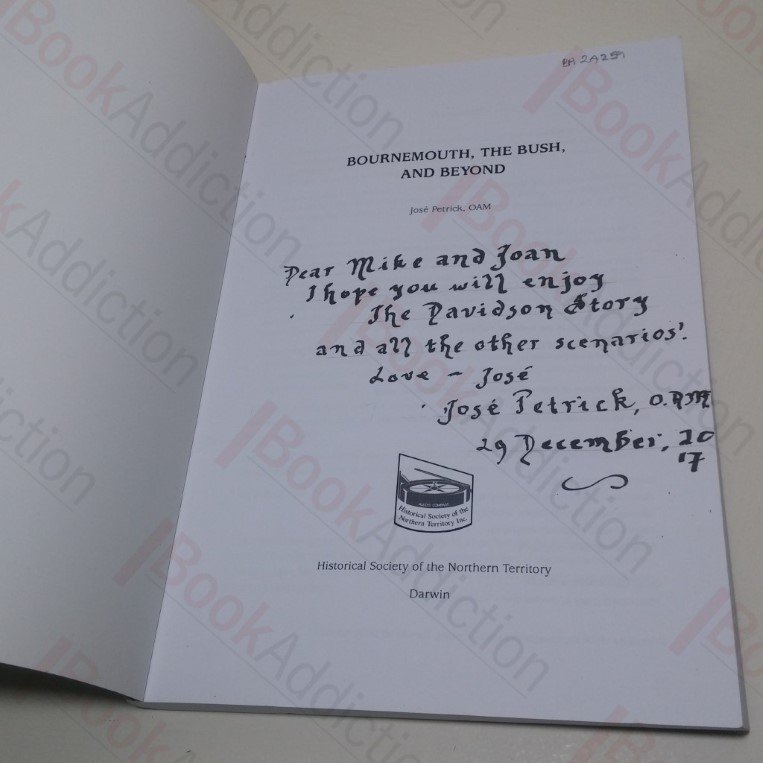 BOURNEMOUTH, THE BUSH,
AND BEYOND
José Petrick, OAM
Dear Mike and Joan
I hope you will enjoy
The Davidson Story
and all the other scenarios!
Love – José
José Petrick, O.AM
29 December, 20
17
Historical Society of the
Northern Territory Inc.
Historical Society of the Northern Territory
Darwin
BookAddiction